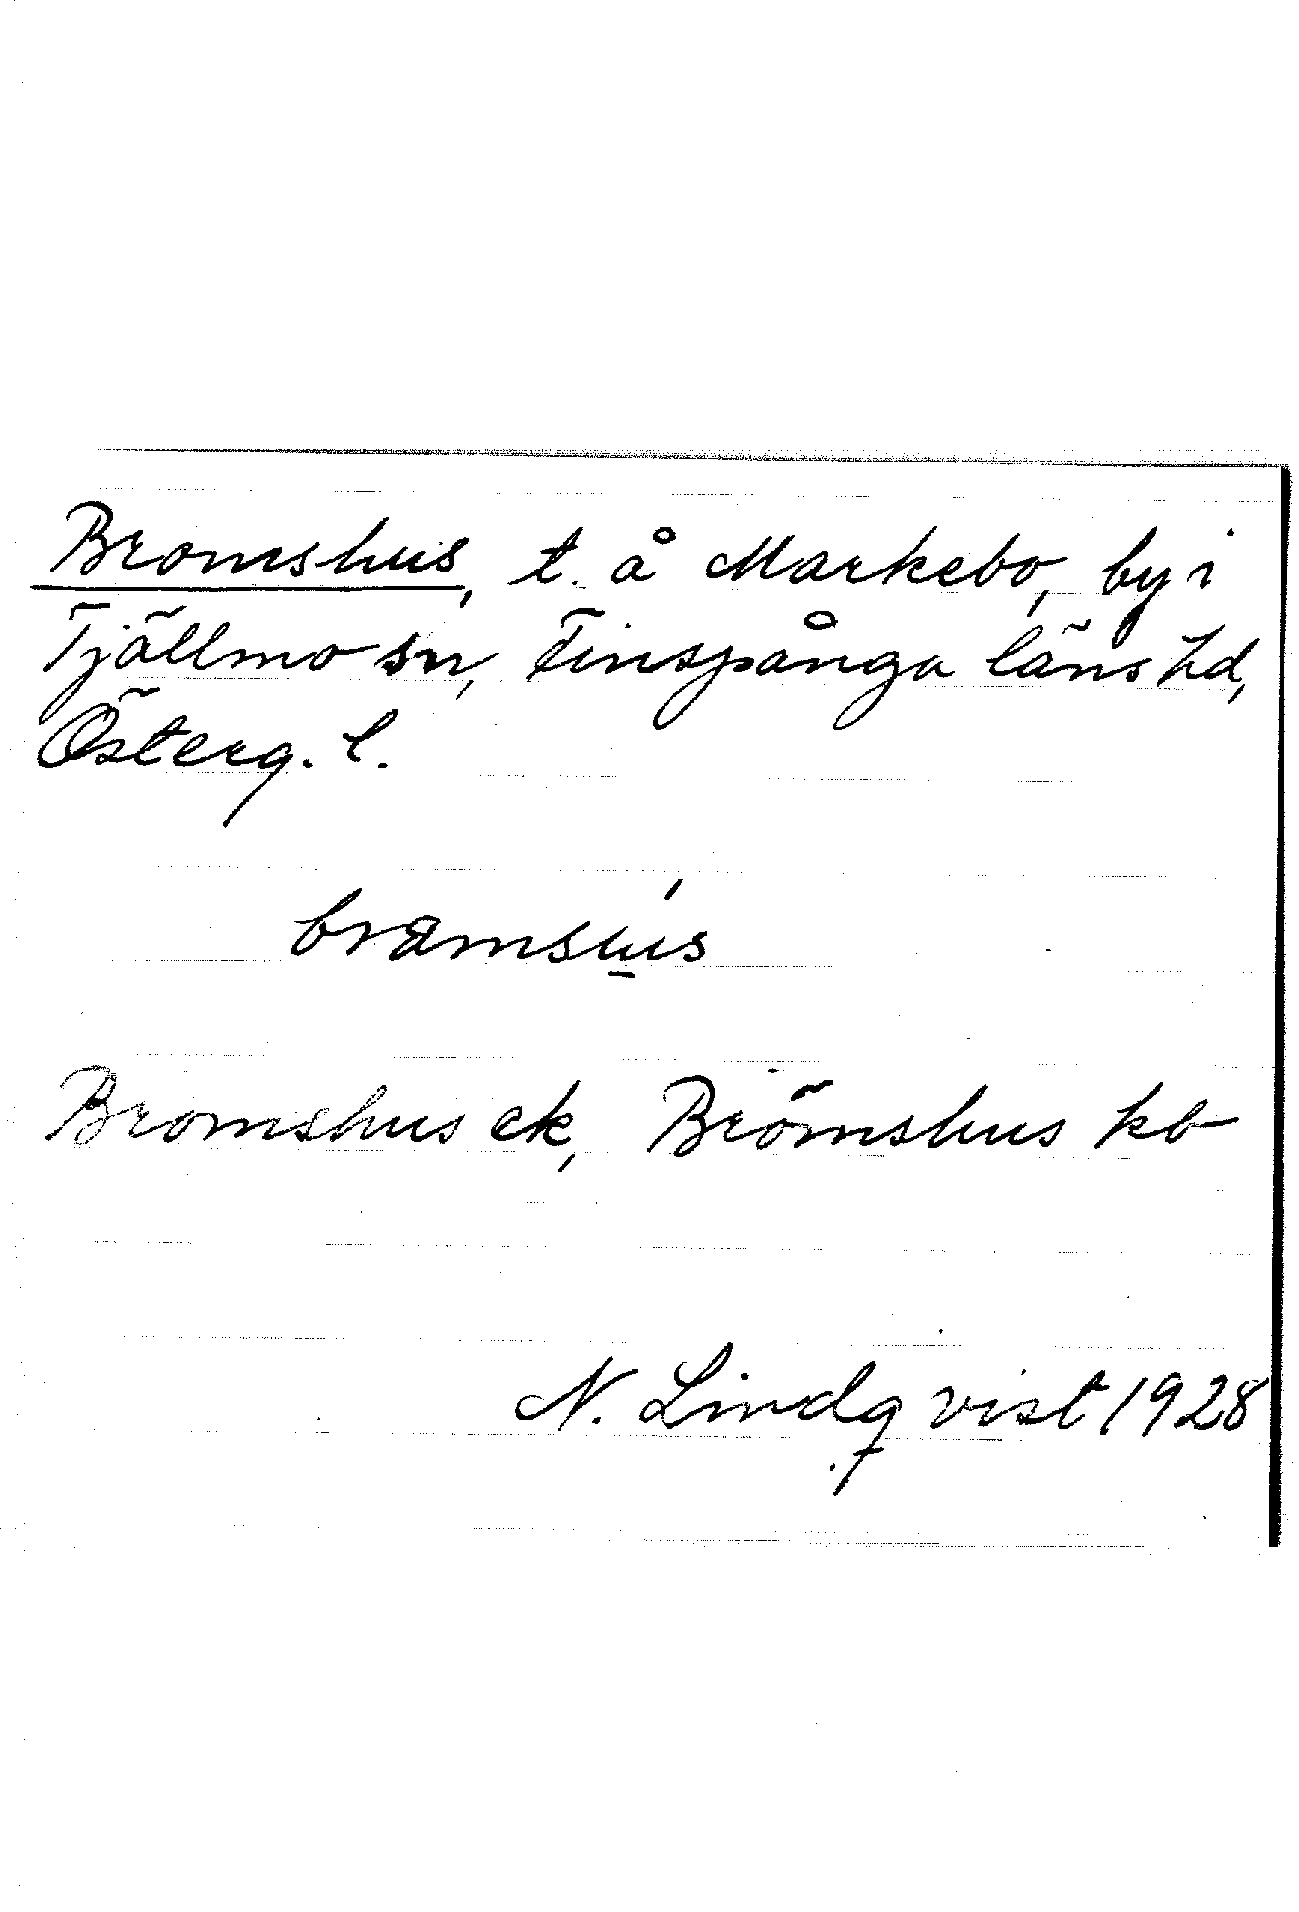 Bromshus, t. å Markebo, by i
Tjällmo sn, Finspånga läns hd,
Österg. l.
bramsu̲s
Bromshus ek, Brömshus kb
N. Lindqvist 1928